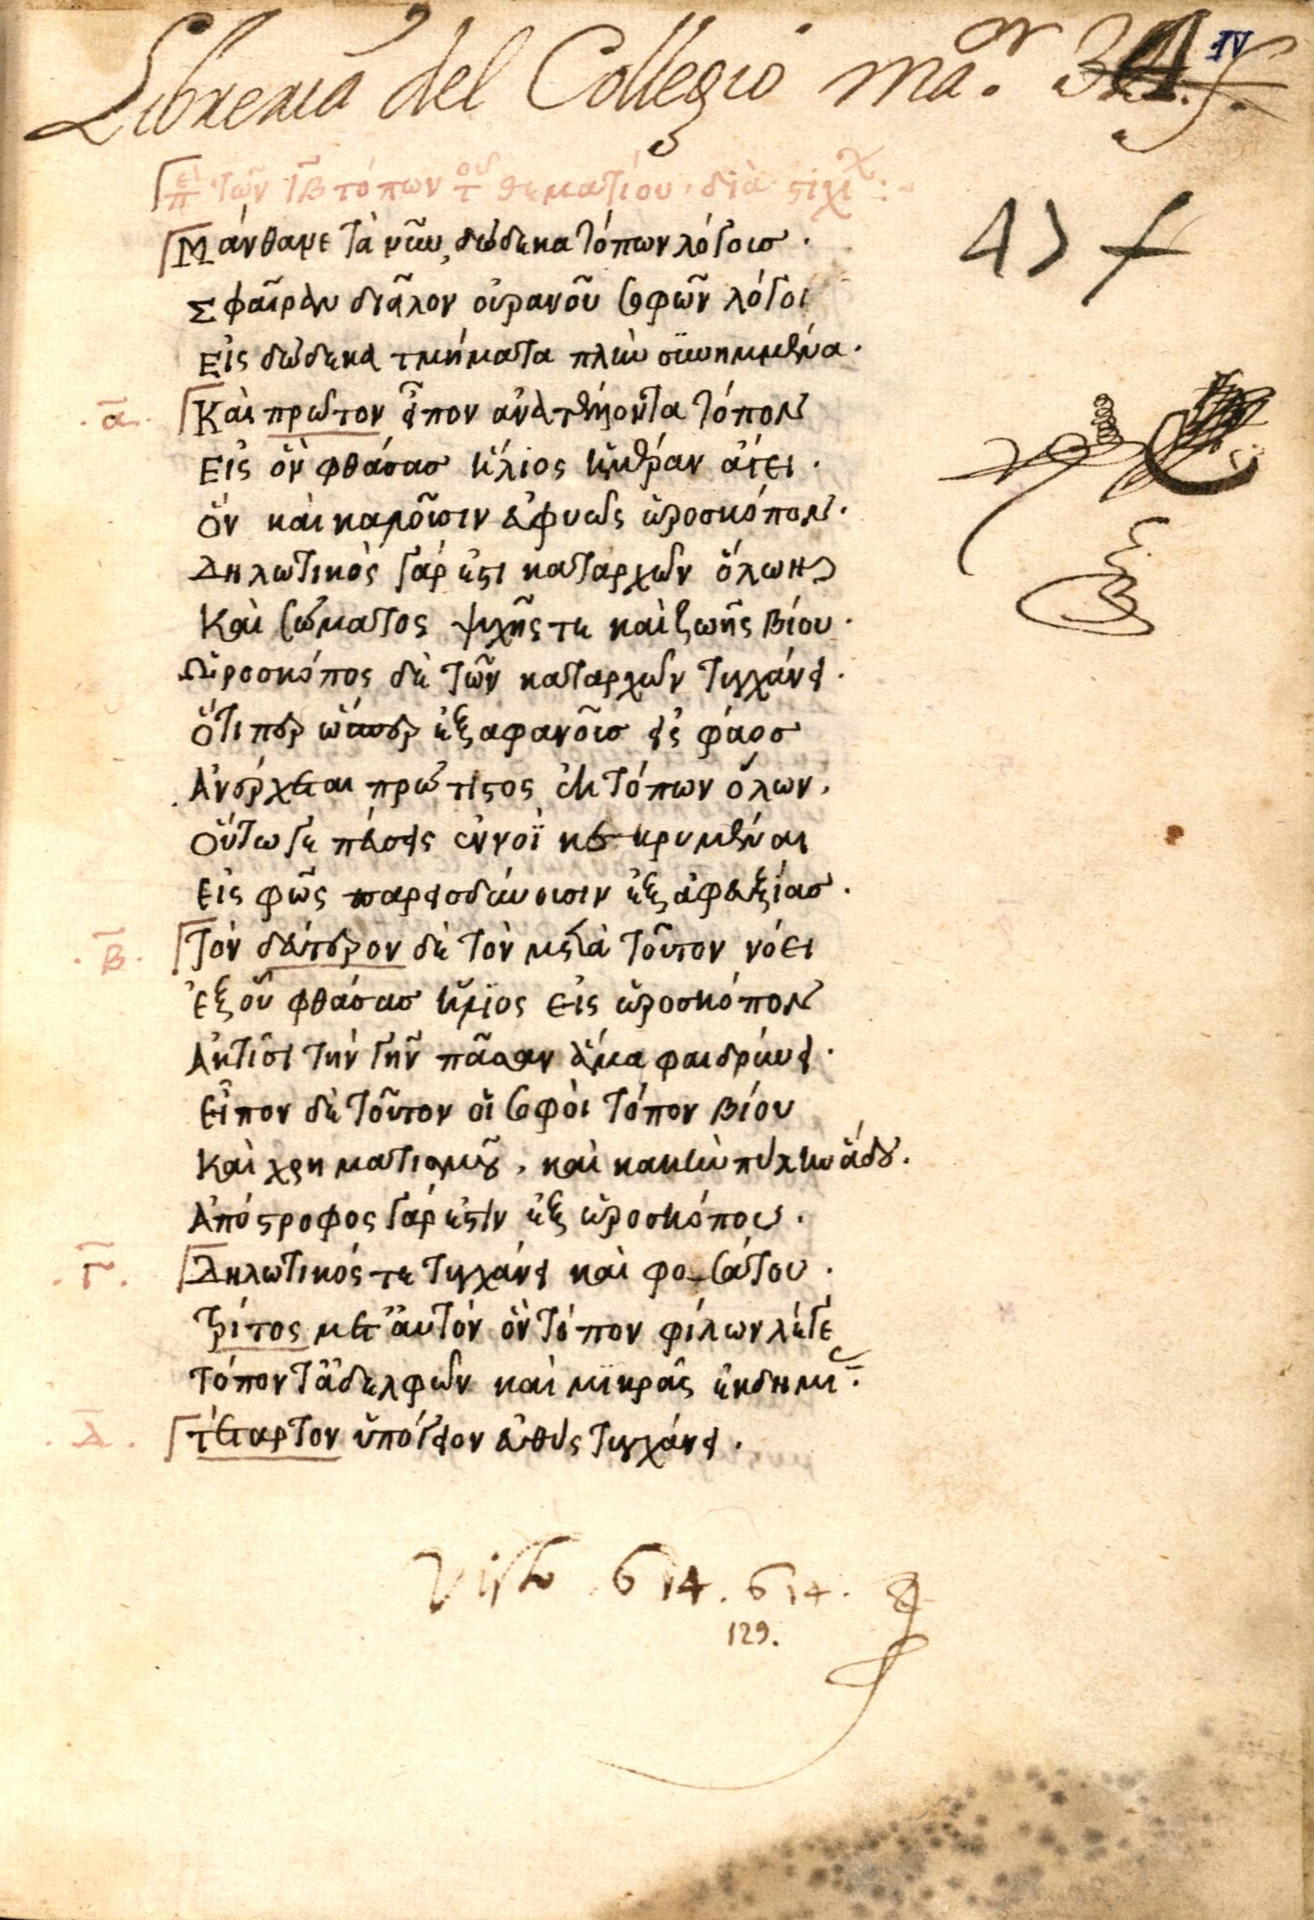 Libreria del Collegio mar.
IV
τῶν ΙΒ τόπων τοῦ θεματίου. διὰ στίχ
Μάνθανε τὰ νῦν, δώδεκα τόπων λόγοις.
Σφαῖραν διεῖλον οὐρανοῦ σοφῶν λόγοι
Εἰς δώδεκα τμήματα πλὴν συνημμένα.
.α. Καὶ πρῶτον εἶπον ἀνατέλλοντα τόπον
Εἰς ὃν φθάσας ἥλιος ἡμέραν ἄγει.
Ὃν καὶ καλοῦσιν εὐφυῶς ὡροσκόπον.
Δηλωτικὸς γάρ ἐστι καταρχῶν ὅλων
Καὶ σώματος ψυχῆς τε καὶ ζωῆς βίου.
Ὡροσκόπος δὲ τῶν καταρχῶν τυγχάνει.
Ὅτι περ ὥσπερ ἐξ ἀφανοῦς εἰς φάος
Ἀνέρχεται πρώτιστος ἐκ τόπων ὅλων.
Οὕτω γε πᾶσαι κεκρυμμέναι
Εἰς φῶς ἐξ ἀφεγγίας.
.Β. Τὸν δεύτερον δὲ τὸν μετὰ τοῦτον νόει
Ἐξ οὗ φθάσας ἥλιος εἰς ὡροσκόπον
τὴν γῆν πᾶσαν ἅμα φαιδρύνει.
Εἶπον δὲ τοῦτον οἱ σοφοὶ τόπον βίου
Καὶ χρηματισμοῦ. καὶ πύλην ἅδου.
Ἀπόστροφος γάρ ἐστιν ἐξ ὡροσκόπου.
.Γ. Δηλωτικός τε τυγχάνει καὶ φοσσάτου.
Τρίτος μετ' αὐτόν ὃν τόπον φίλων λέγε
Τόπον τ' ἀδελφῶν καὶ μικρᾶς ἐκδημι
.Δ. τέταρτον ὑπόγειον εὐθὺς τυγχάνει.
Visto 614. 614.
129.